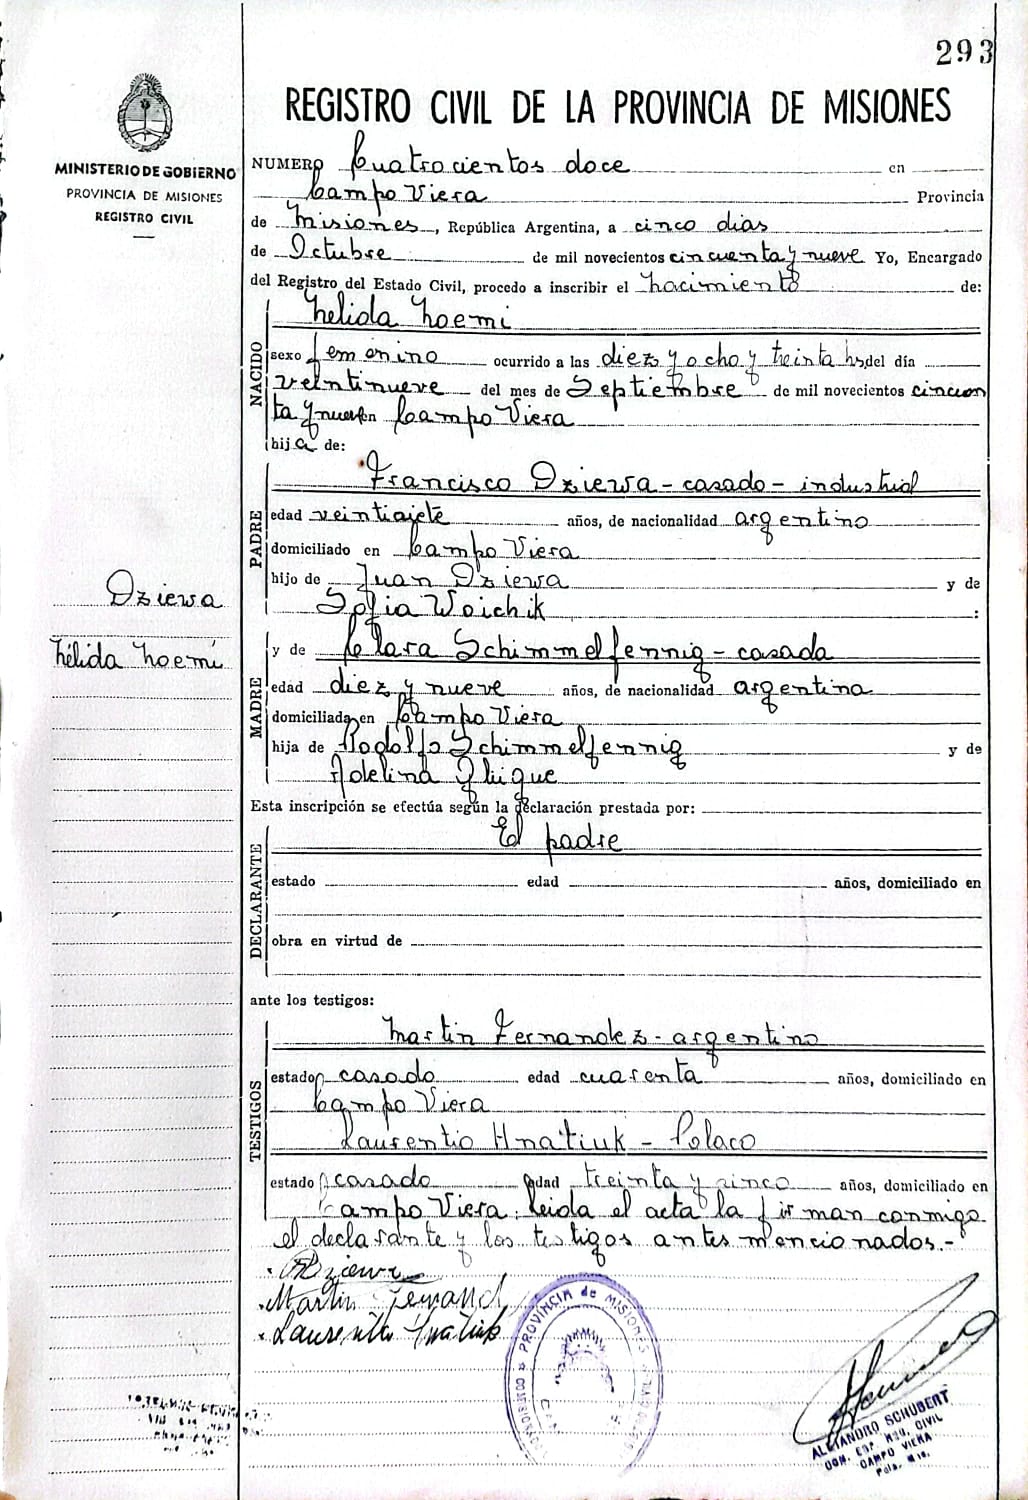 293
REGISTRO CIVIL DE LA PROVINCIA DE MISIONES
MINISTERIO DE GOBIERNO
PROVINCIA DE MISIONES
REGISTRO CIVIL
NUMERO Cuatrocientos doce en
Campo Viera Provincia
de Misiones, República Argentina, a cinco dias
de Octubre de mil novecientos cincuenta y nueve Yo, Encargado
del Registro del Estado Civil, procedo a inscribir el nacimiento de:
NACIDO
Nelida Noemi
sexo femenino ocurrido a las diez y ocho y treinta hs, del día
veintinueve del mes de Septiembre de mil novecientos cincuen
ta y nueve en Campo Viera
hija de:
PADRE
Francisco Dziewa - casado - industrial
edad veintisiete años, de nacionalidad argentino
domiciliado en Campo Viera
hijo de Juan Dziewa y de
Sofia Woichik :
Dziewa
Nélida Noemí
MADRE
y de Clara Schimmelfennig - casada
edad diez y nueve años, de nacionalidad argentina
domiciliada en Campo Viera
hija de Rodolfo Schimmelfennig y de
Adelina
Esta inscripción se efectúa según la declaración prestada por:
DECLARANTE
El padre
estado edad años, domiciliado en
obra en virtud de
ante los testigos:
TESTIGOS
Martin Fernandez - argentino
estado casado edad cuarenta años, domiciliado en
Campo Viera
Laurentio Hnatiuk - Polaco
estado casado edad treinta y cinco años, domiciliado en
Campo Viera. Leida el acta la firman conmigo
el declarante y los testigos antes mencionados.-
Martin
PROVINCIA de MISIONES
ALEJANDRO SCHUBERT
CIVIL
CAMPO VIERA